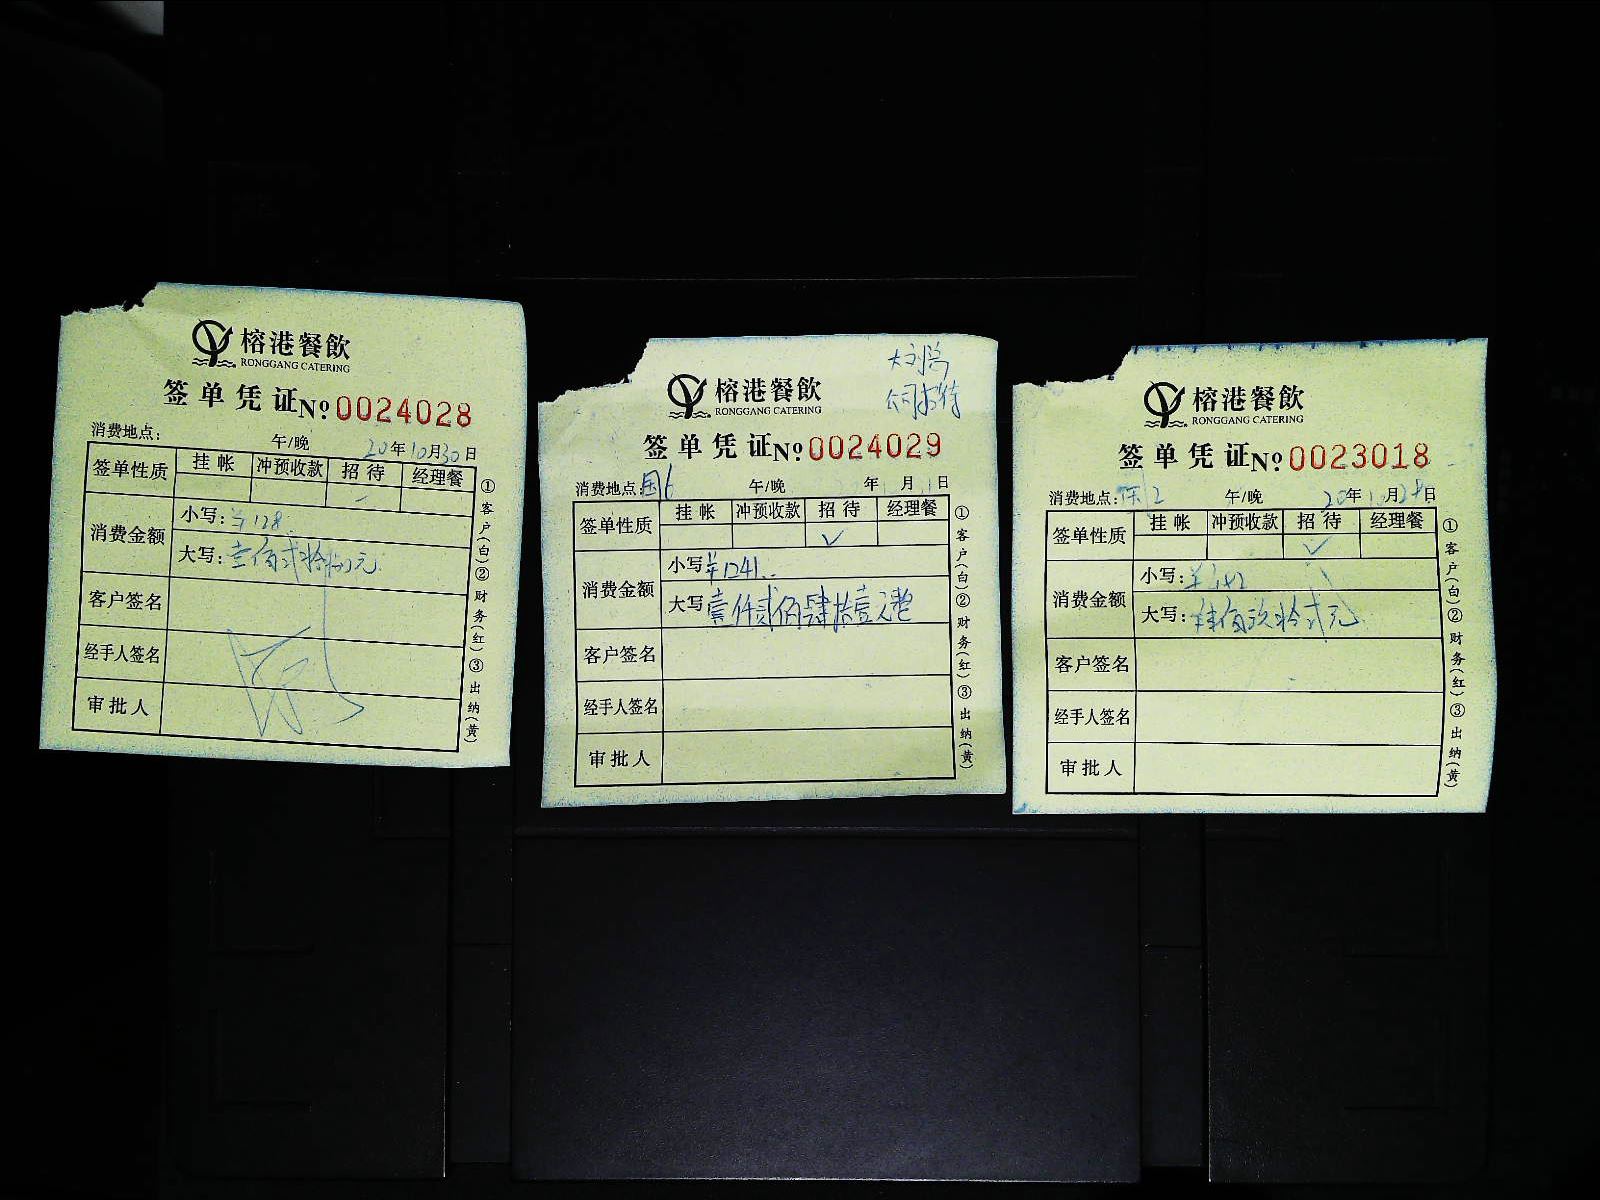 榕港餐飲
RONGGANG CATERING
签单凭证 No 0024028
消费地点: 午/晚 20年10月30日
签单性质 挂帐 冲预收款 招待 经理餐
消费金额 小写: ¥128
大写: 壹佰贰拾捌元
客户签名
经手人签名
审批人
①客户(白)②财务(红)③出纳(黄)
大刘总
公司招待
榕港餐飲
RONGGANG CATERING
签单凭证 No 0024029
消费地点: 国6 午/晚 年 月 日
签单性质 挂帐 冲预收款 招待 经理餐
✓
消费金额 小写 ¥1241
大写 壹仟贰佰肆拾壹元整
客户签名
经手人签名
审批人
①客户(白)②财务(红)③出纳(黄)
榕港餐飲
RONGGANG CATERING
签单凭证 No 0023018
消费地点: 午/晚 20年 月28日
签单性质 挂帐 冲预收款 招待 经理餐
✓
消费金额 小写:
大写: 佰玖拾贰元
客户签名
经手人签名
审批人
①客户(白)②财务(红)③出纳(黄)